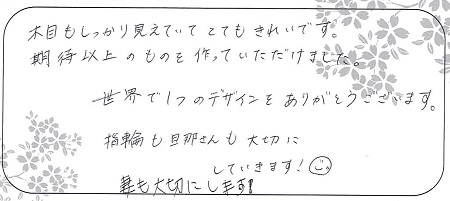 木目もしっかり見えていてとてもきれいです。
期待以上のものを作っていただけました。
世界で1つのデザインをありがとうございます。
指輪も旦那さんも大切に
していきます!
妻も大切にします!